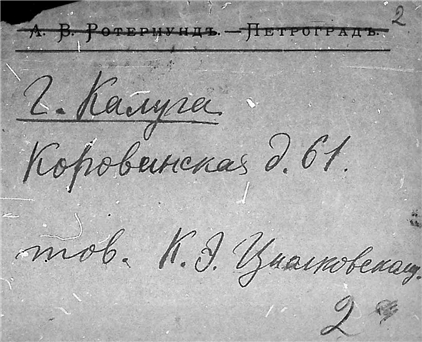 2
А. В. Ротермундъ. — Петроградъ.
г. Калуга
Коровинская д. 61.
тов. К. Э. Циалковскому.
2